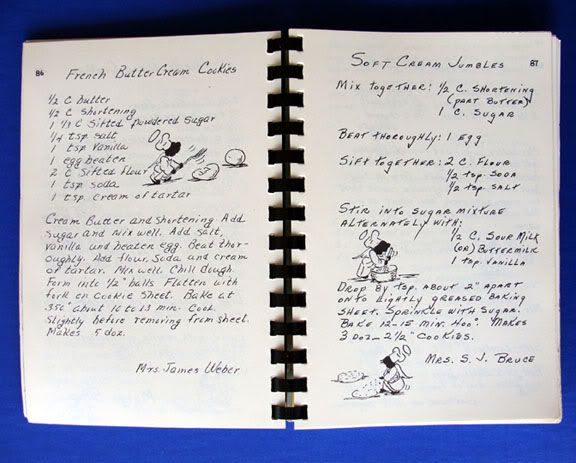 86
French Butter Cream Cookies
1/2 C butter
1/2 C Shortening
1 1/3 C Sifted powdered sugar
1/4 tsp salt
1 tsp vanilla
1 egg beaten
2 C Sifted flour
1 tsp soda
1 tsp cream of tartar
Cream Butter and Shortening. Add
Sugar and mix well. Add salt,
vanilla and beaten egg. Beat thor-
oughly. Add flour, Soda and cream
of tartar. Mix well. Chill dough.
Form into 1/2" balls. Flatten with
fork on cookie sheet. Bake at
350° about 10 to 13 min. Cool
slightly before removing from sheet.
Makes 5 doz.
Mrs James Weber
87
Soft Cream Jumbles
Mix together: 1/2 C. Shortening
(part butter)
1 C. Sugar
Beat thoroughly: 1 Egg
Sift together: 2 C. Flour
1/2 tsp. Soda
1/2 tsp. Salt
Stir into sugar mixture
alternately with:
1/2 C. Sour Milk
(or) Buttermilk
1 tsp. Vanilla
Drop by tsp. about 2" apart
onto lightly greased baking
sheet. Sprinkle with sugar.
Bake 12-15 min. 400°. Makes
3 doz - 2 1/2" cookies.
Mrs. S. J. Bruce